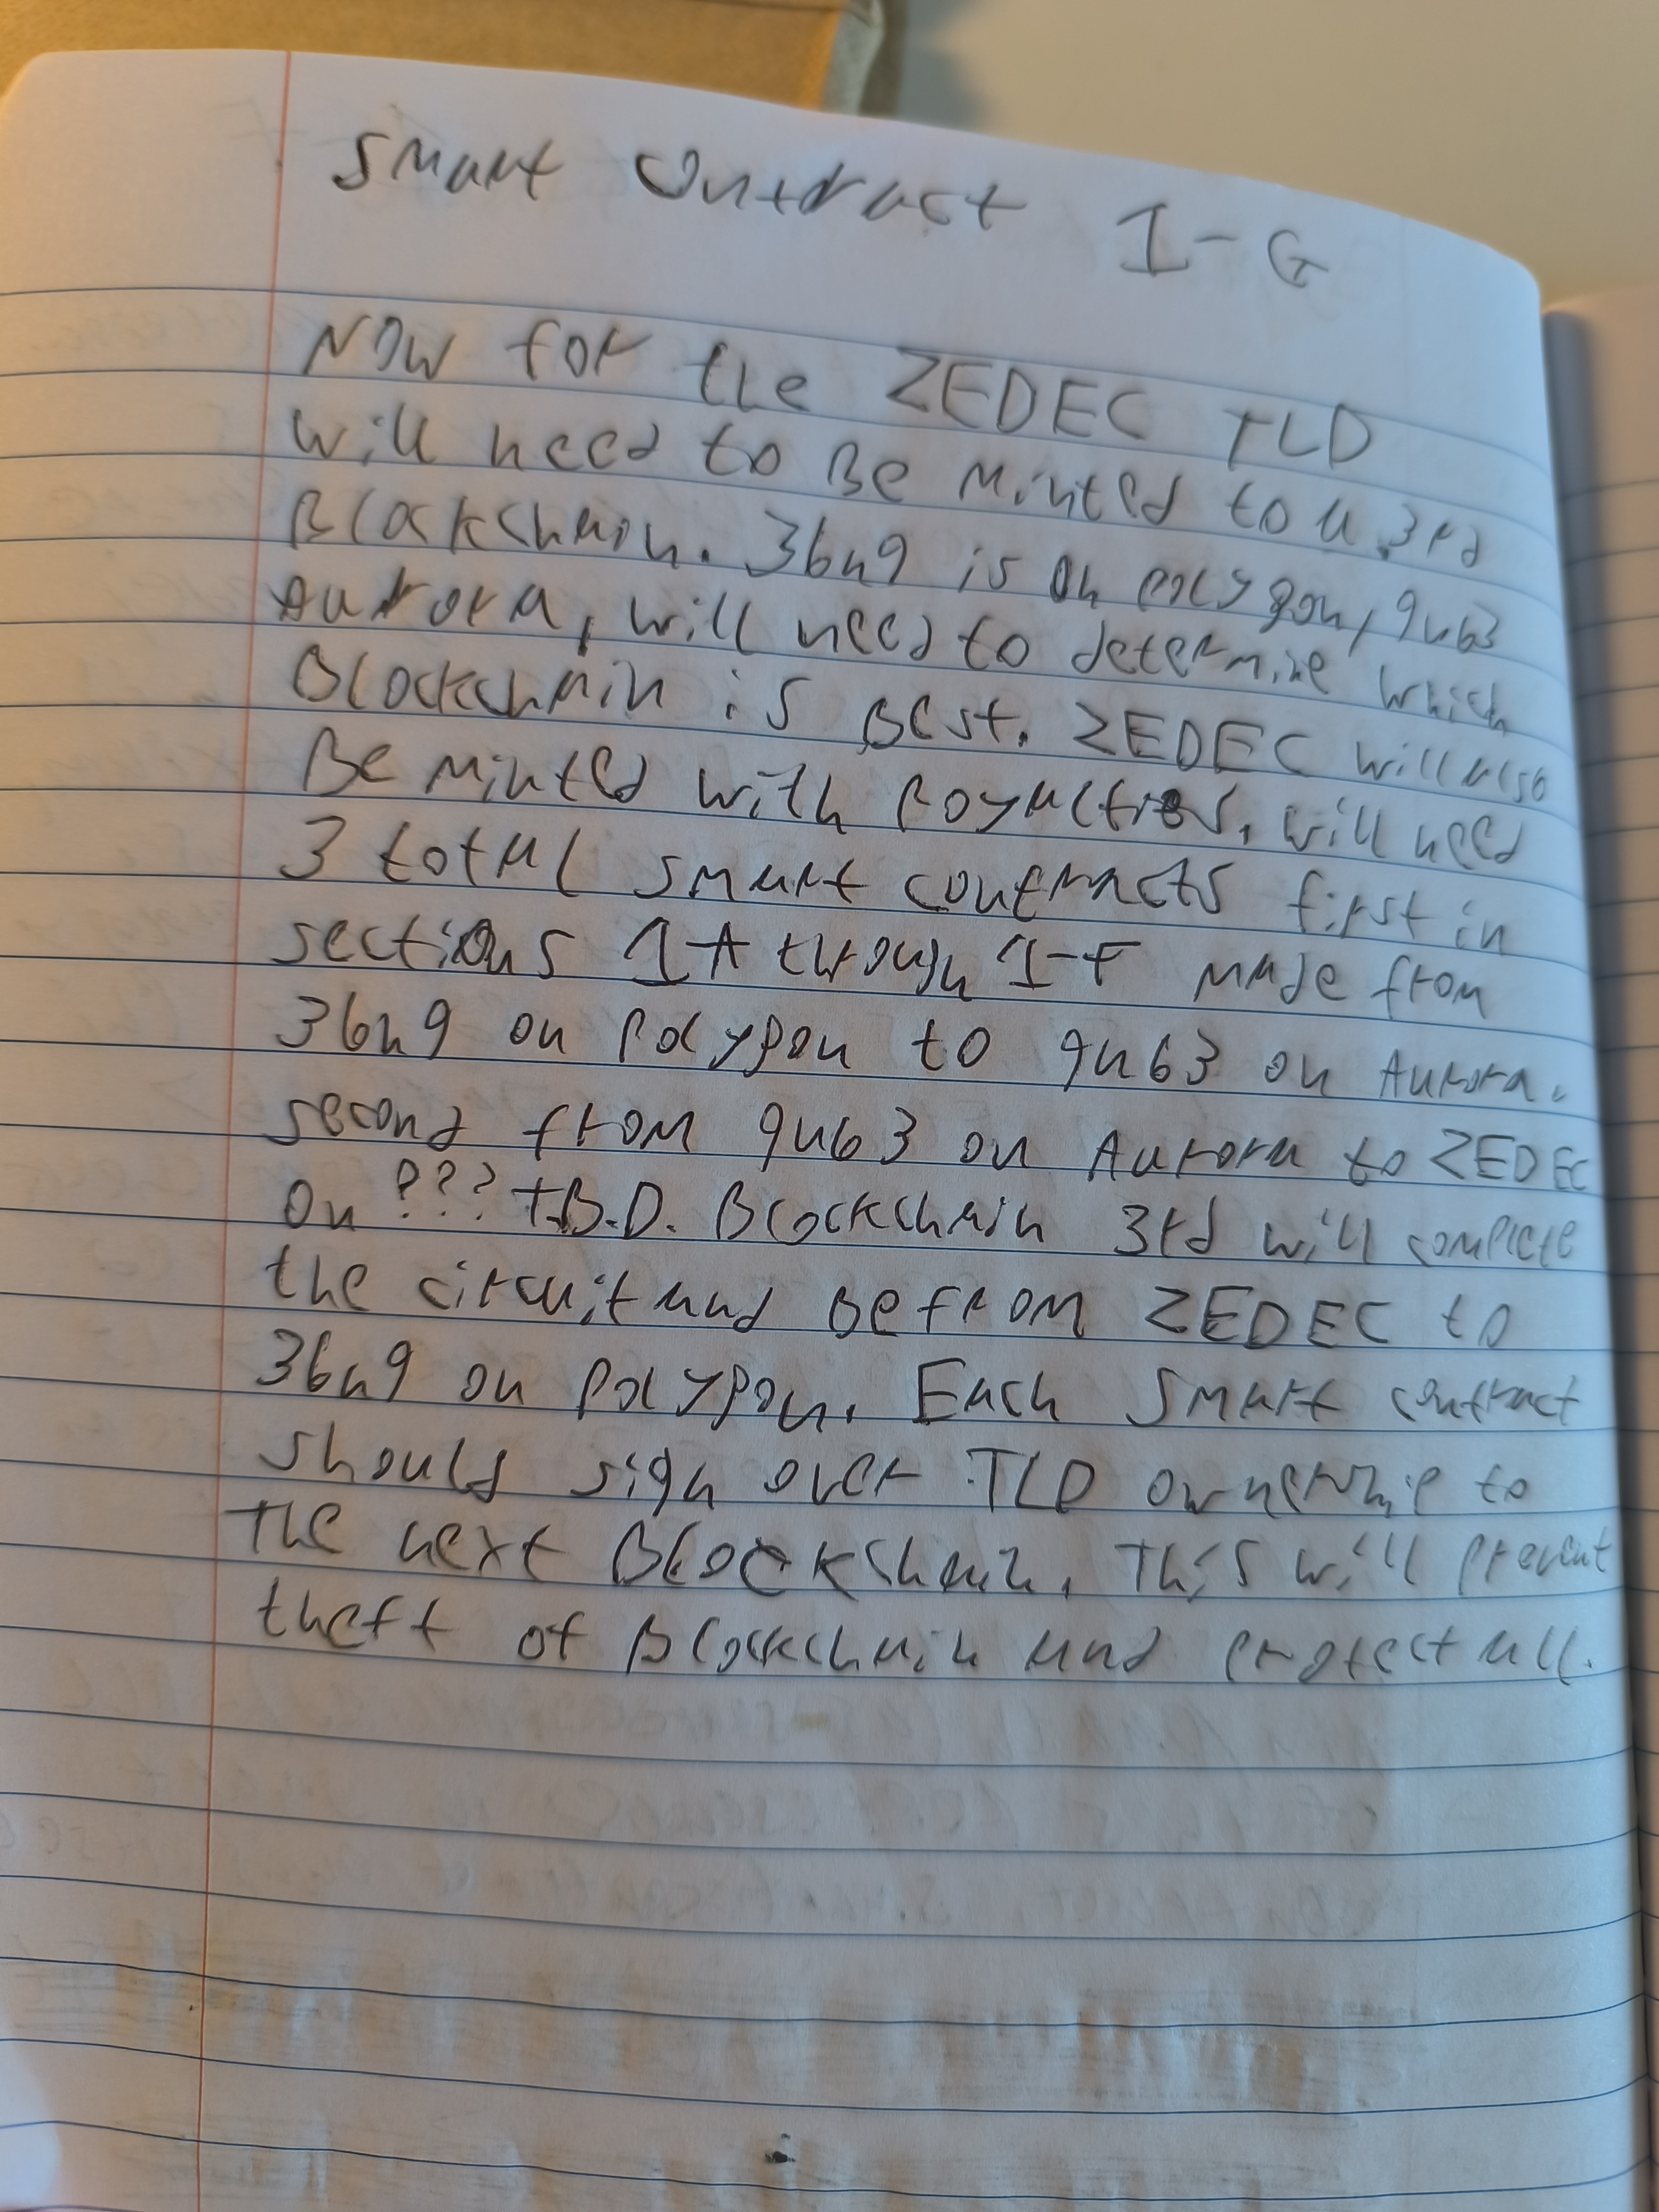 Smart Contract I-G
Now for the ZEDEC TLD
will need to Be Minted to a 3rd
Blockchain. 36n9 is on polygon, 9n63
Aurora, will need to determine which
Blockchain is Best. ZEDEC will also
Be minted with Royalties, will need
3 total smart contracts first in
sections I-A through I-F made from
36n9 on Polygon to 9n63 on Aurora.
second from 9n63 on Aurora to ZEDEC
on ??? T.B.D. Blockchain 3rd will complete
the circuit and Be from ZEDEC to
36n9 on Polygon. Each Smart contract
should sign over TLD ownership to
The next Blockchain. This will prevent
theft of Blockchain and protect all.